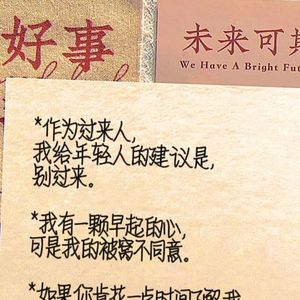 好事
未来可期
We Have A Bright Fut
*作为过来人，
我给年轻人的建议是，
别过来。
*我有一颗早起的心，
可是我的被窝不同意。
*如果你肯花一点时间了解我